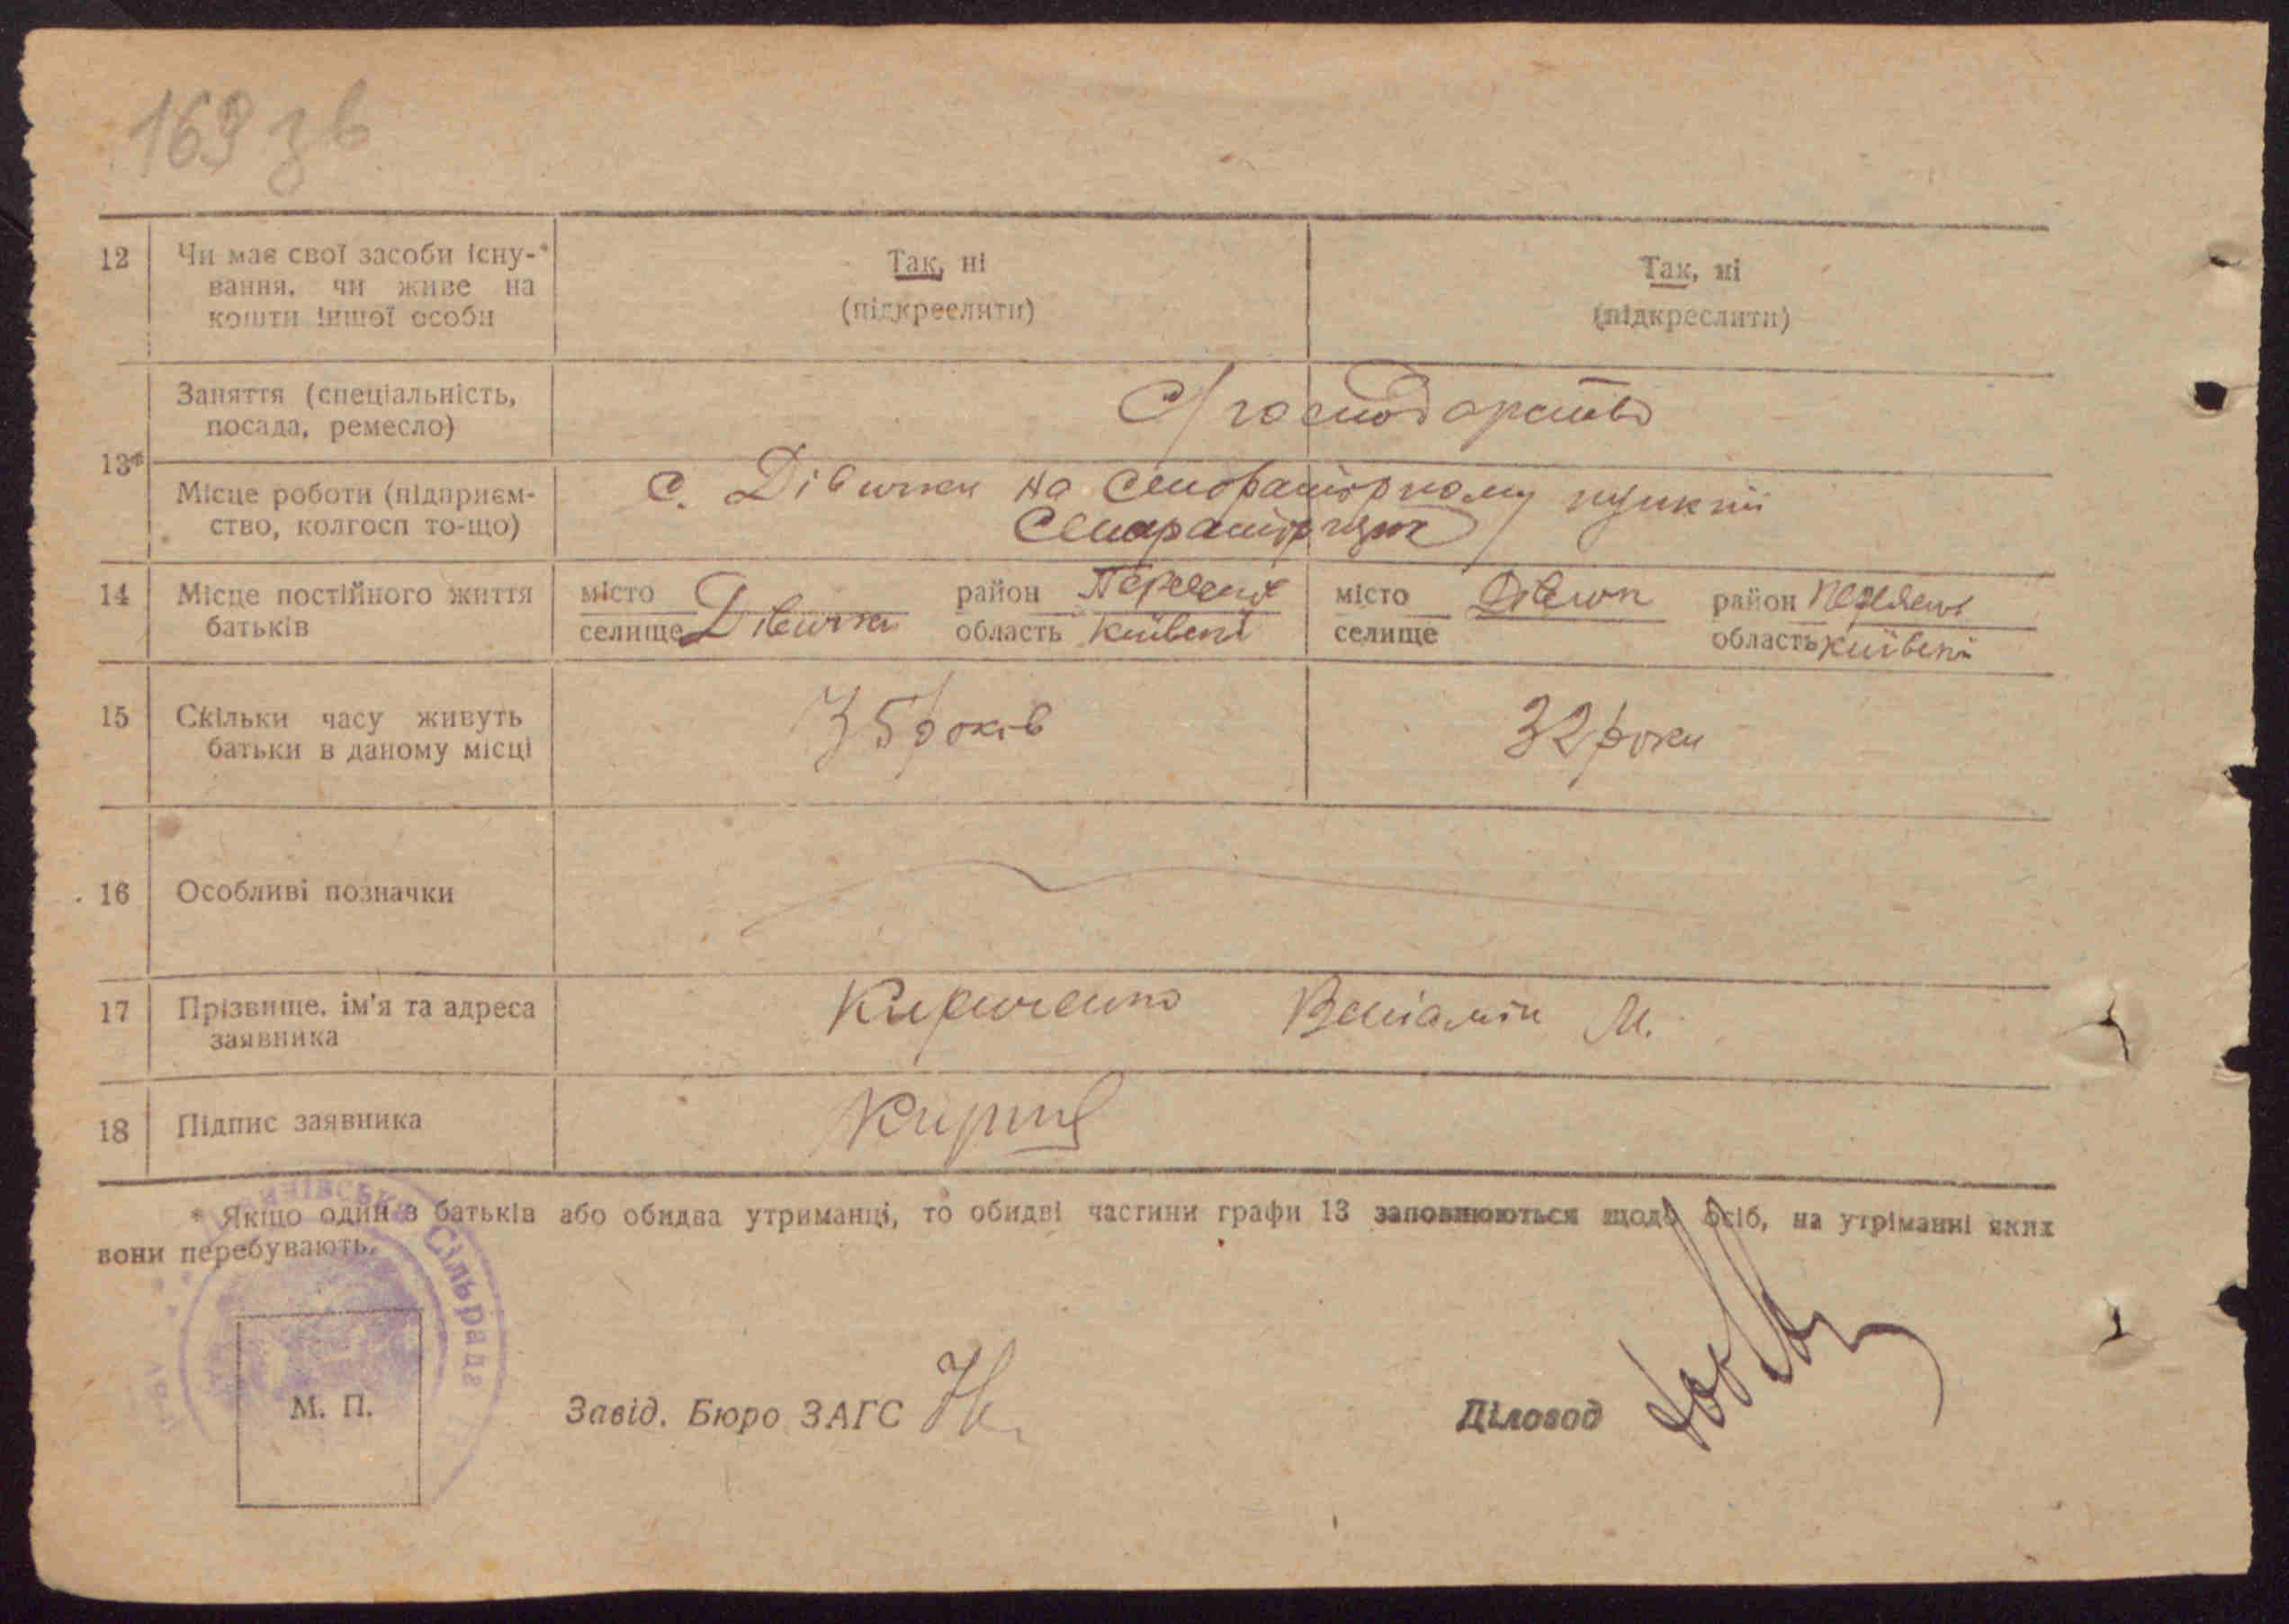 169 зв
12 Чи має свої засоби існу-* Так, ні Так, ні
вання, чи живе на (підкреслити) (підкреслити)
кошти іншої особи
Заняття (спеціальність, С/господарство
посада, ремесло)
13*
Місце роботи (підприєм- с. Дівички на сепораторному пункті
ство, колгосп то-що)
14 Місце постійного життя місто район місто Дівички район
батьків селище Дівички область Київськ селище область Київськ
15 Скільки часу живуть 35 років 32 роки
батьки в даному місці
16 Особливі позначки
17 Прізвище, ім'я та адреса Кириченко Веніамін М.
заявника
18 Підпис заявника
* Якщо один з батьків або обидва утриманці, то обидві частини графи 13 заповнюються щодо осіб, на утріманні яких
вони перебувають.
Сільрада
М. П. Завід. Бюро ЗАГС Діловод